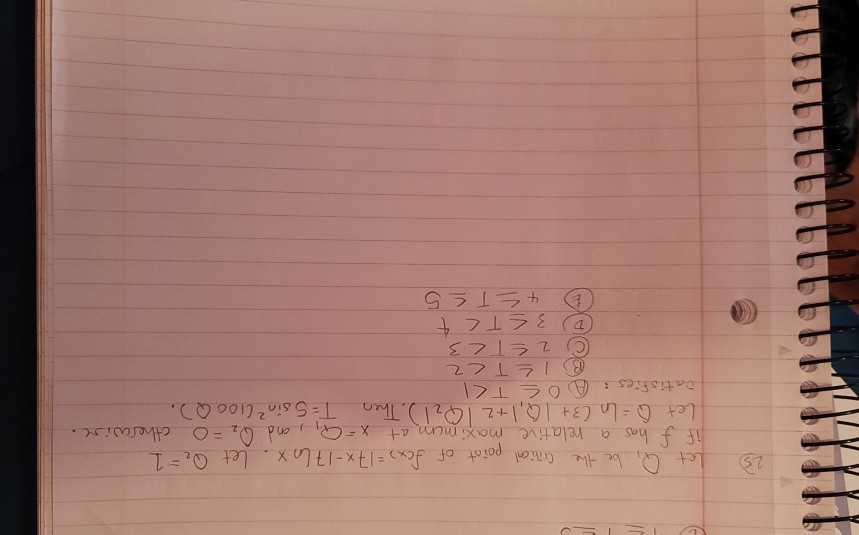 23) Let Q₁ be the critical point of f(x)=17x-17 ln x. Let Q₂=1
if f has a relative maximum at x=Q₁, and Q₂=0 otherwise.
Let Q = ln(3+|Q₁|+2|Q₂|). Then T=5sin²(100Q).
satisfies:
Ⓐ 0 ≤ T < 1
Ⓑ 1 ≤ T < 2
Ⓒ 2 ≤ T < 3
Ⓓ 3 ≤ T < 4
Ⓔ 4 ≤ T ≤ 5